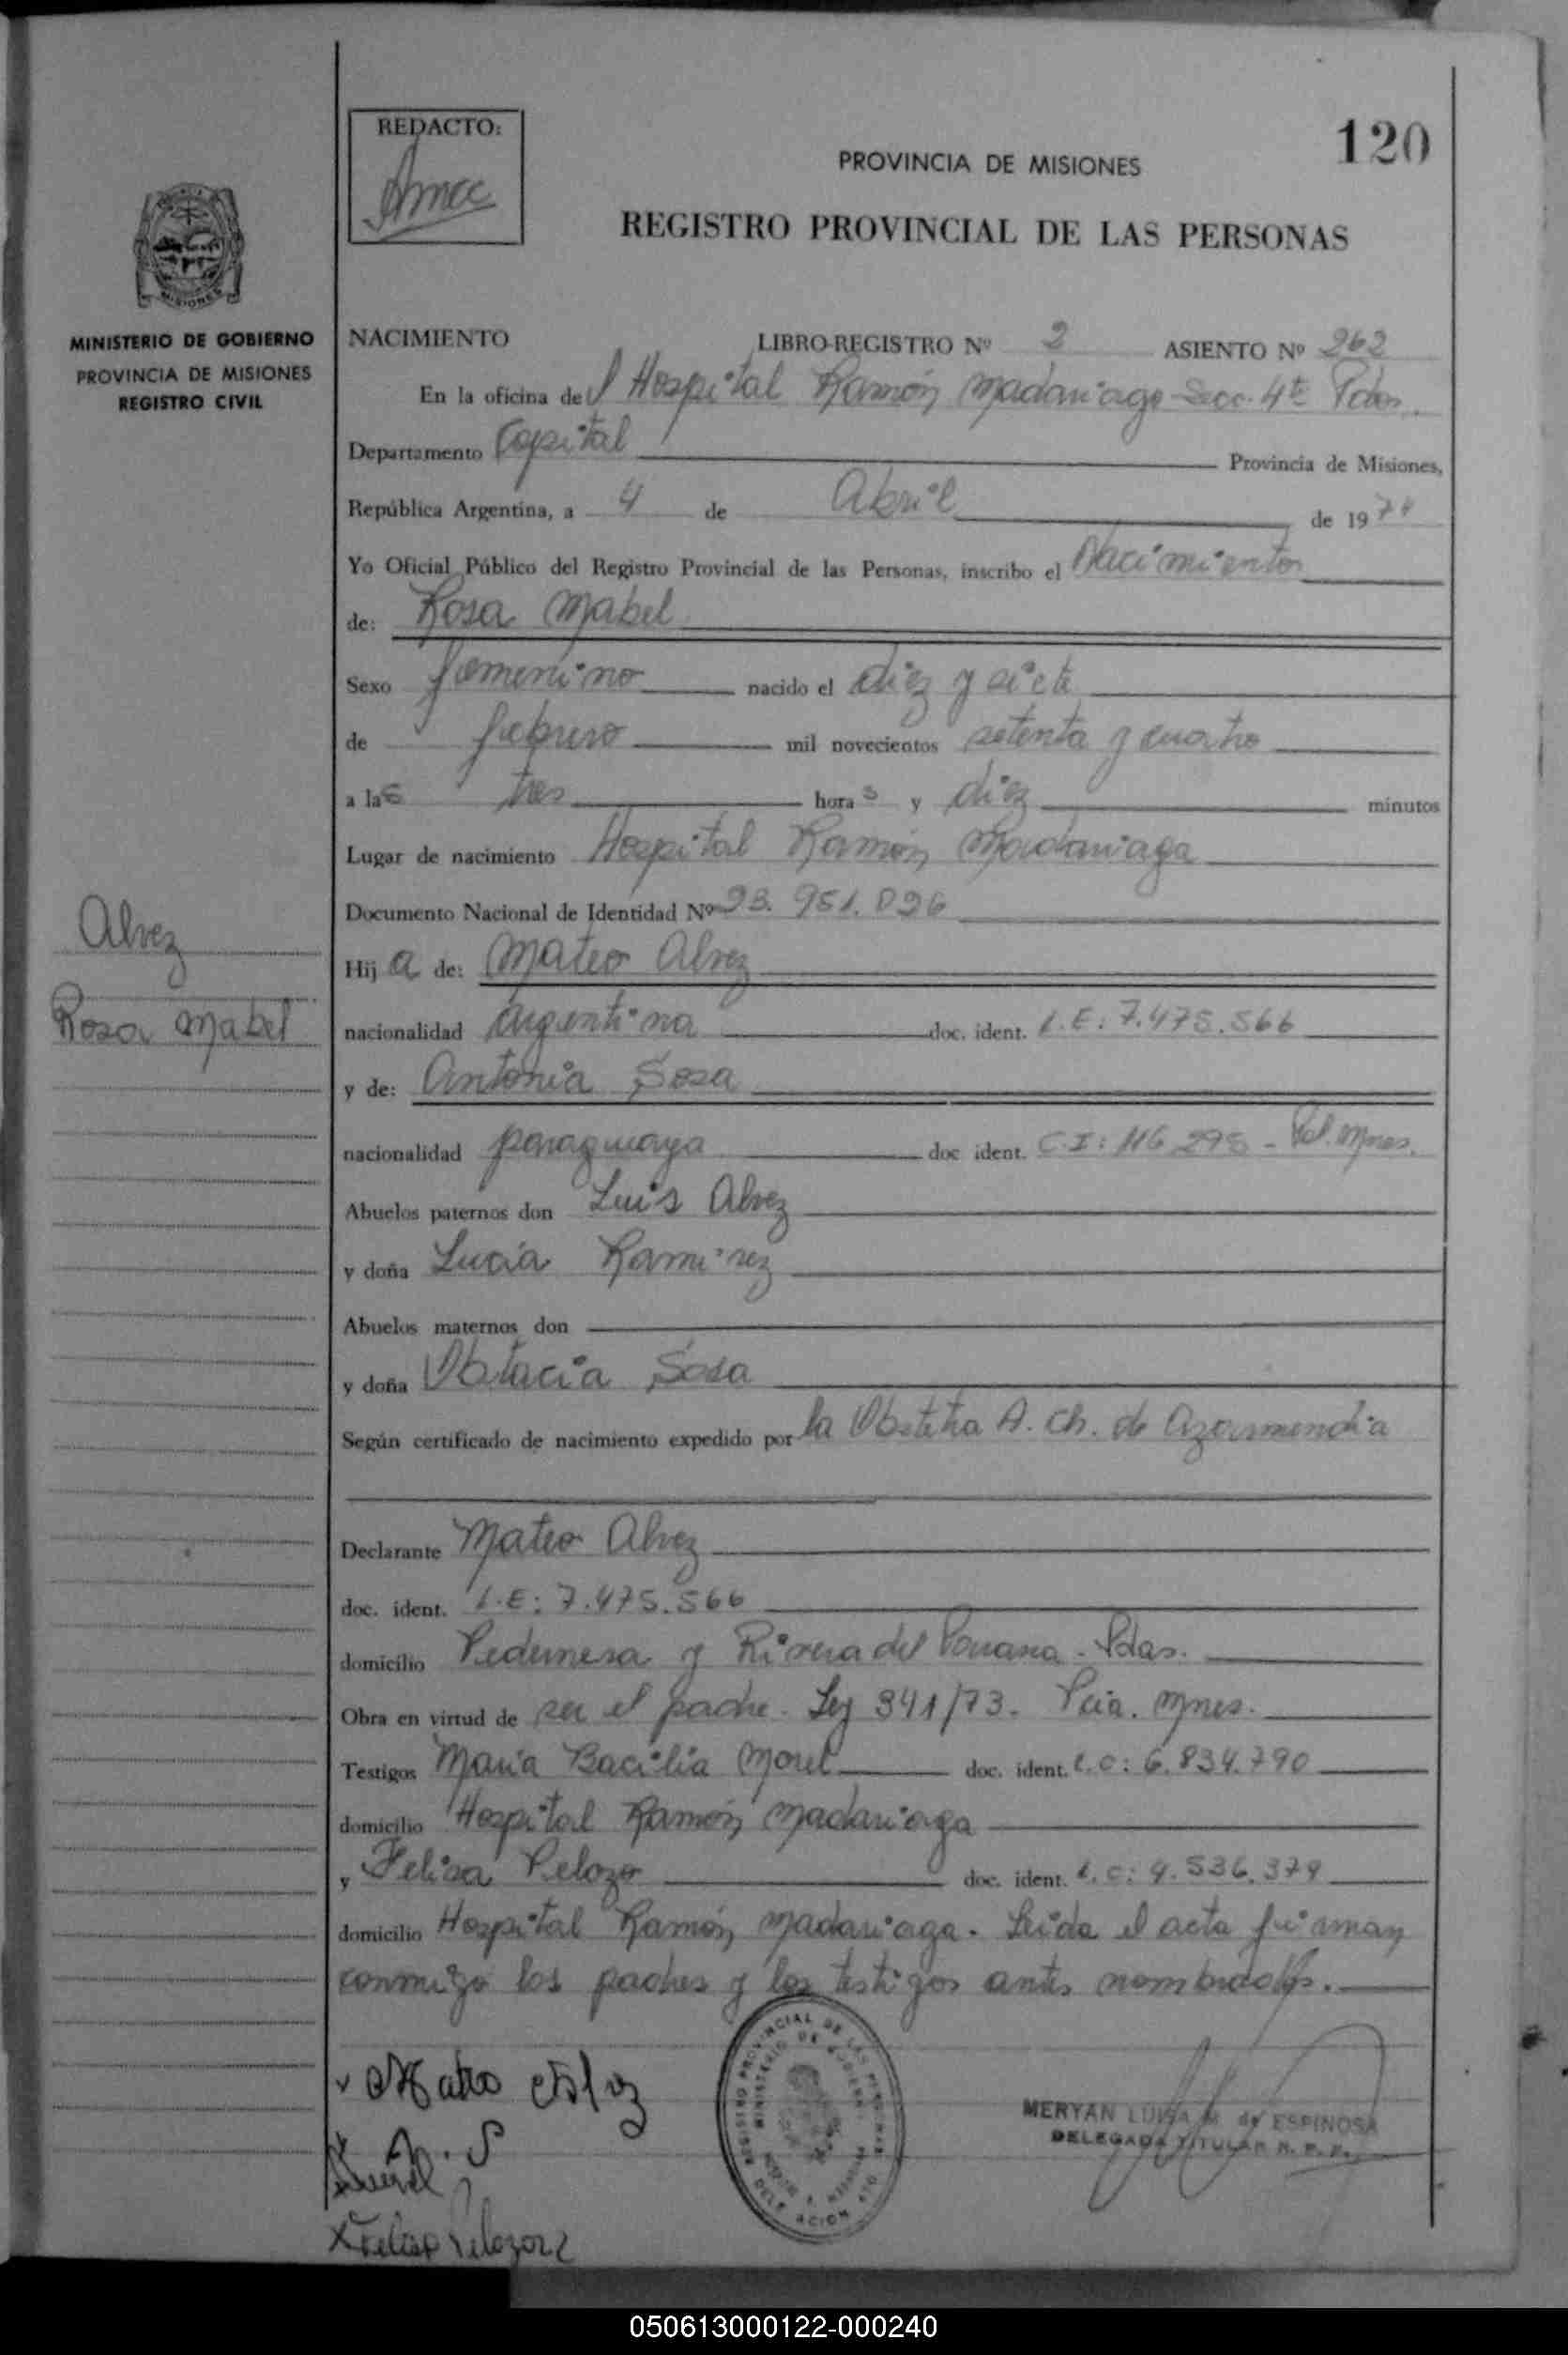 120
REDACTO:
PROVINCIA DE MISIONES
REGISTRO PROVINCIAL DE LAS PERSONAS
MISIONES
MINISTERIO DE GOBIERNO
PROVINCIA DE MISIONES
REGISTRO CIVIL
NACIMIENTO LIBRO-REGISTRO Nº 2 ASIENTO Nº 262
En la oficina del Hospital Ramón Madariaga Secc. 4ta Pdas.
Departamento Capital Provincia de Misiones,
República Argentina, a 4 de Abril de 1974
Yo Oficial Público del Registro Provincial de las Personas, inscribo el Nacimiento
de: Rosa Mabel
Sexo femenino nacido el diez y siete
de febrero mil novecientos setenta y cuatro
a las tres horas y diez minutos
Lugar de nacimiento Hospital Ramón Madariaga
Documento Nacional de Identidad Nº 23.951.096
Alvez
Hija de: Mateo Alvez
Rosa Mabel
nacionalidad argentina doc. ident. L.E: 7.475.566
y de: Antonia Sosa
nacionalidad paraguaya doc ident. C.I: 116.298 - Pol. Mnes.
Abuelos paternos don Luis Alvez
y doña Lucia Ramirez
Abuelos maternos don
y doña Otacia Sosa
Según certificado de nacimiento expedido por la Obstetra A. Ch. de Azarmendia
Declarante Mateo Alvez
doc. ident. L.E: 7.475.566
domicilio Pedernera y Rivera del Parana - Pdas.
Obra en virtud de ser el padre. Ley 341/73. Pcia. Mnes.
Testigos Maria Bacilia Morel doc. ident. L.C: 6.834.790
domicilio Hospital Ramón Madariaga
y Felisa Pelozo doc. ident. L.C: 4.536.379
domicilio Hospital Ramón Madariaga. Leida el acta firman
conmigo los padres y los testigos antes nombrados.
REGISTRO PROVINCIAL DE LAS PERSONAS
MINISTERIO DE GOBIERNO
MERYAN LUISA M. de ESPINOSA
DELEGADA TITULAR R. P. P.
050613000122-000240